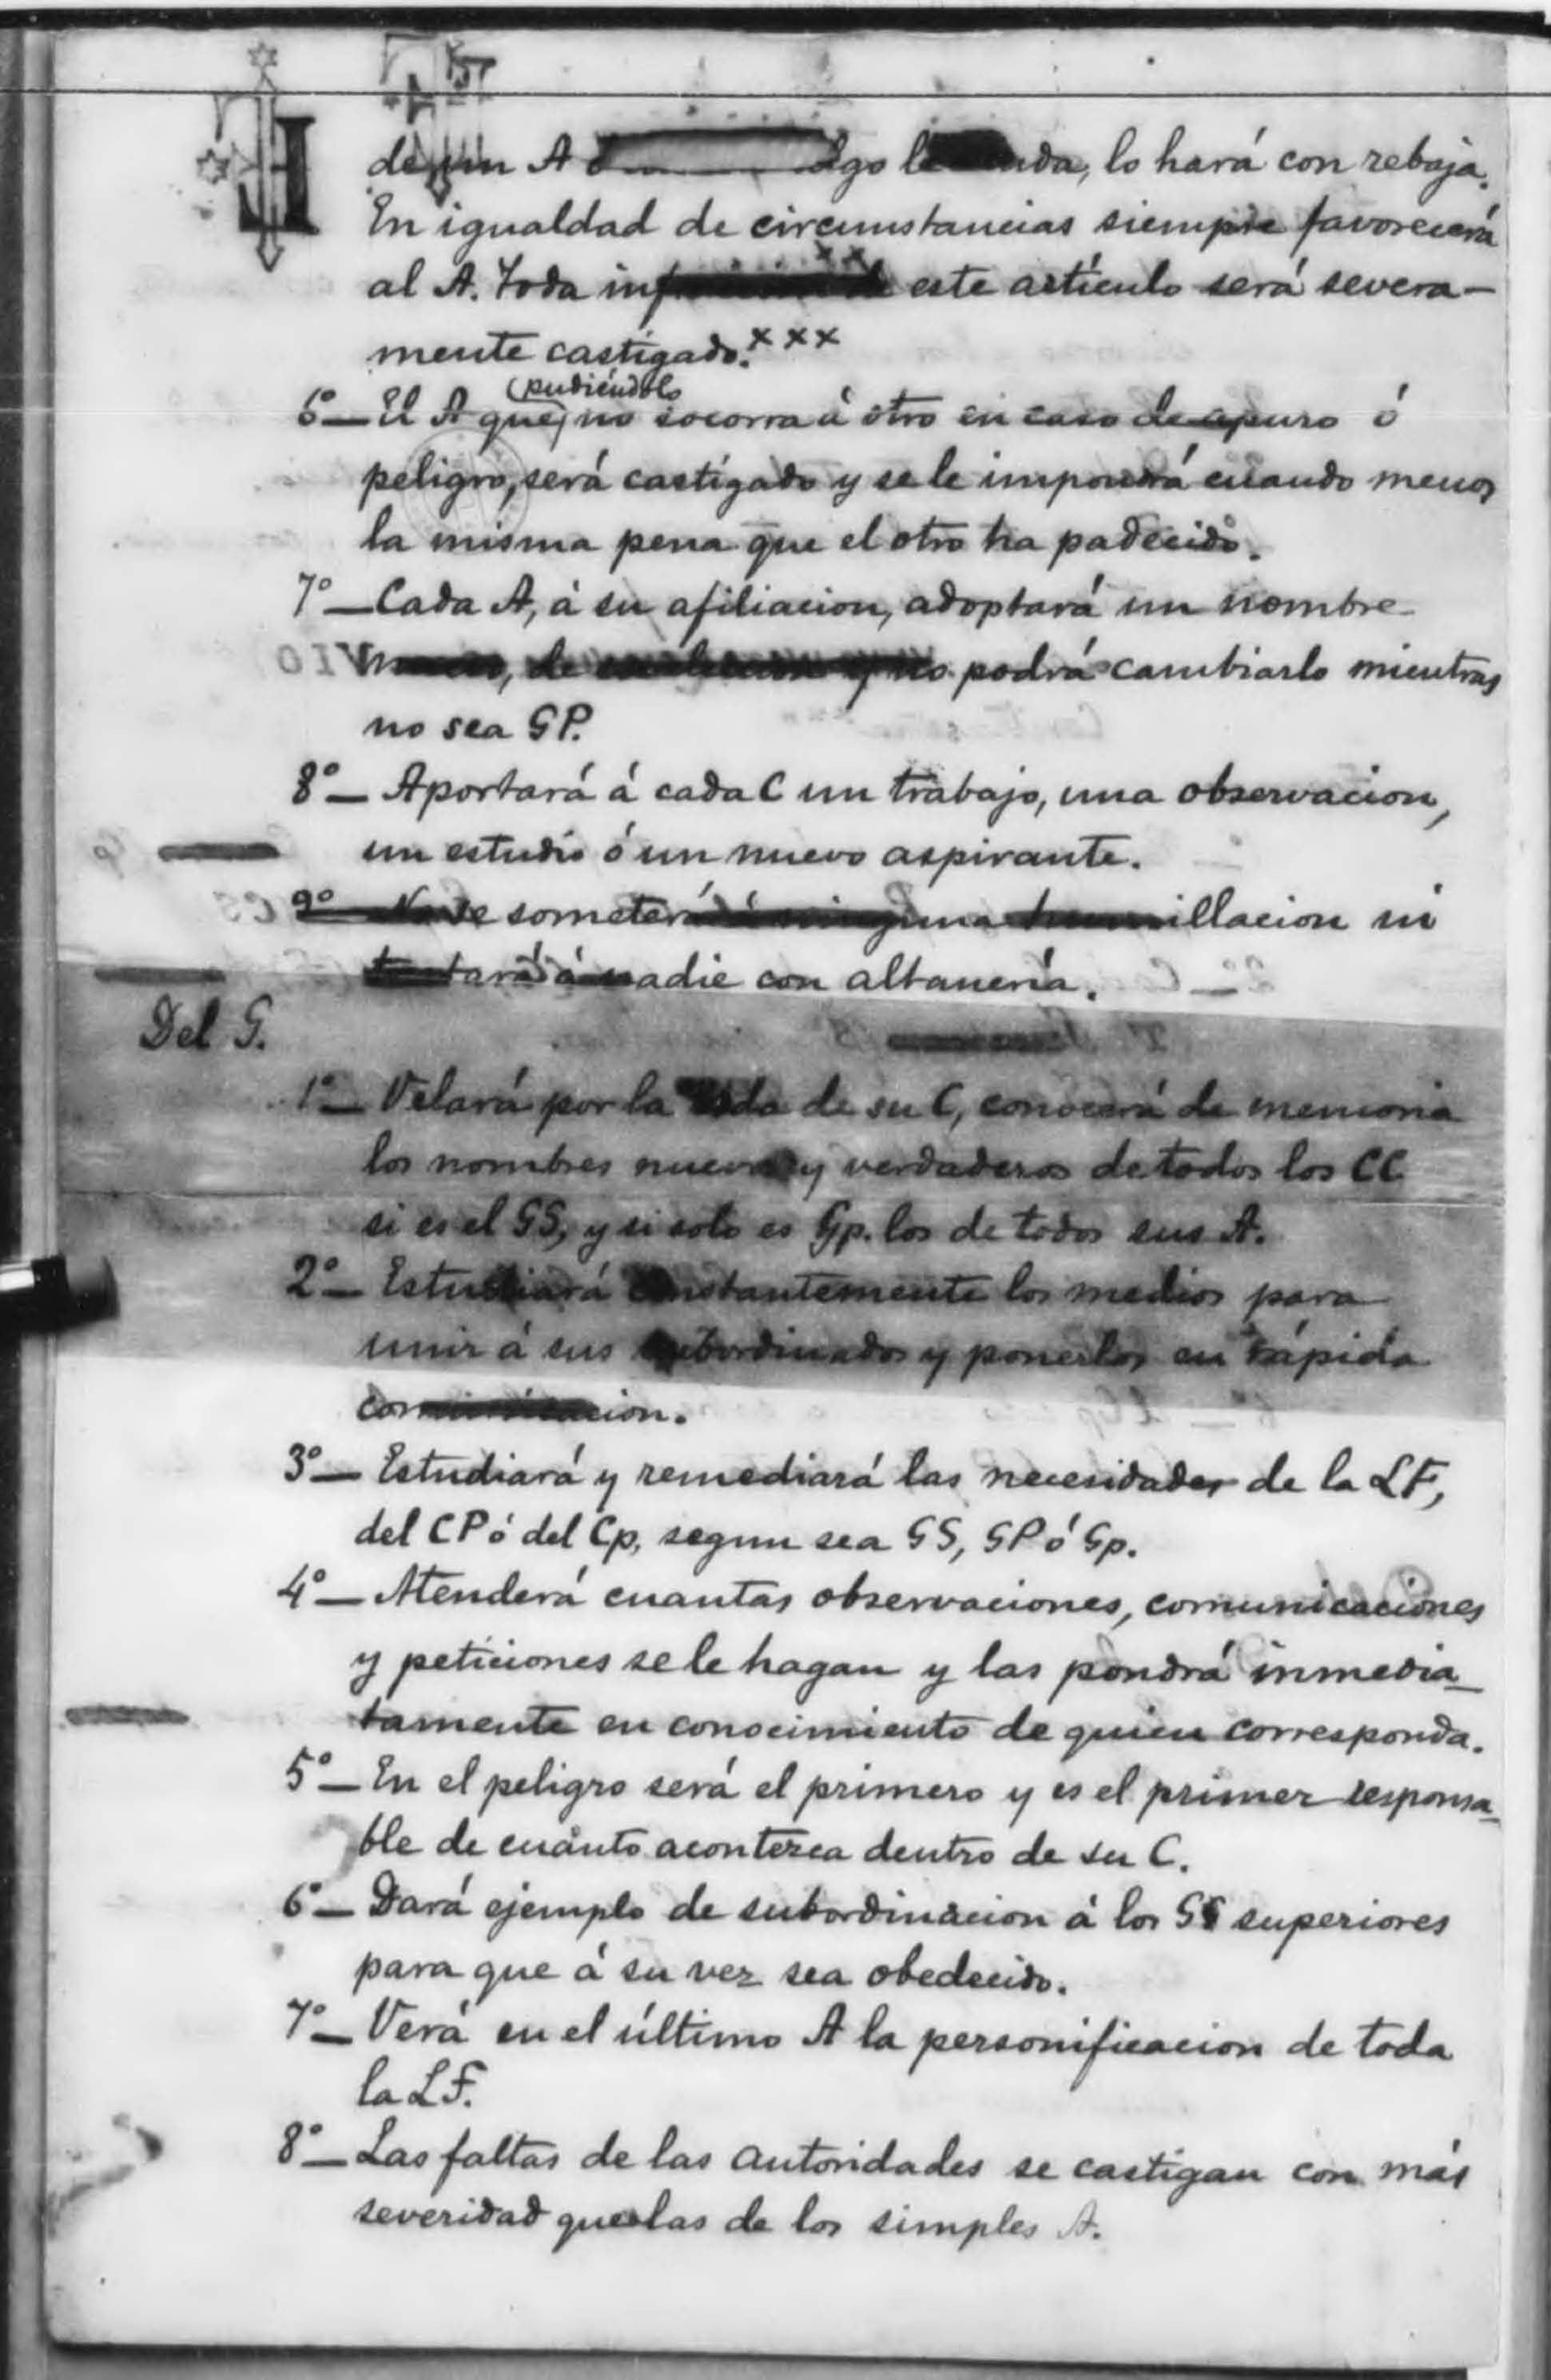 de un A ó algo le venda, lo hará con rebaja.
En igualdad de circumstancias siempre favorecerá
al A. Toda infraccion de este artículo será severa-
mente castigado. xxx
6º — El A que, (pudiéndolo) no socorra á otro en caso de apuro ó
peligro, será castigado y se le impondrá cuando menos
la misma pena que el otro ha padecido.
7º — Cada A, á su afiliacion, adoptará un nombre
nuevo, de su eleccion y no podrá cambiarlo mientras
no sea GP.
8º — Aportará á cada C un trabajo, una observacion,
un estudio ó un nuevo aspirante.
9º — No se someterá á ninguna humillacion ni
tratará á nadie con altanería.
Del G.
1º — Velará por la vida de su C, conocerá de memoria
los nombres nuevos y verdaderos de todos los CC
si es el GS, y si solo es Gp. los de todos sus A.
2º — Estudiará constantemente los medios para
unir á sus subordinados y ponerlos en rápida
comunicacion.
3º — Estudiará y remediará las necesidades de la LF,
del CP ó del Cp, segun sea GS, GP ó Gp.
4º — Atenderá cuantas observaciones, comunicaciones
y peticiones se le hagan y las pondrá inmedia-
tamente en conocimiento de quien corresponda.
5º — En el peligro será el primero y es el primer responsa-
ble de cuánto acontezca dentro de su C.
6º — Dará ejemplo de subordinacion á los GG superiores
para que á su vez sea obedecido.
7º — Verá en el último A la personificacion de toda
la LF.
8º — Las faltas de las autoridades se castigan con más
severidad que las de los simples A.